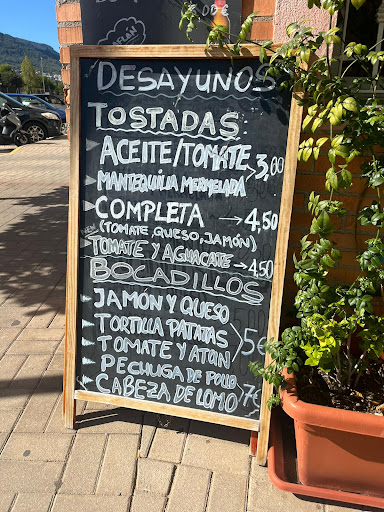 DESAYUNOS
TOSTADAS
ACEITE/TOMATE 3,00
MANTEQUILLA MERMELADA
COMPLETA → 4,50
(TOMATE, QUESO, JAMÓN)
TOMATE Y AGUACATE → 4,50
BOCADILLOS
JAMÓN Y QUESO
TORTILLA PATATAS
TOMATE Y ATÚN 5€
PECHUGA DE POLLO
CABEZA DE LOMO 7€